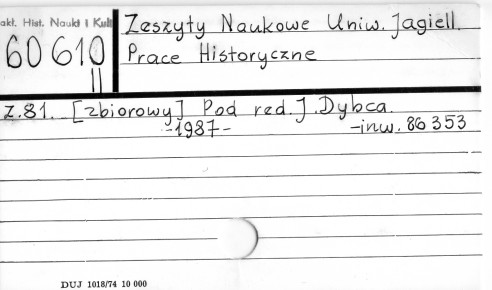 akł. Hist. Nauki i Kult
60 610
II
Zeszyty Naukowe Uniw. Jagiell.
Prace Historyczne
Z.81. [zbiorowy] Pod red. J. Dybca.
-1987-
-inw. 86 353
DUJ 1018/74 10 000